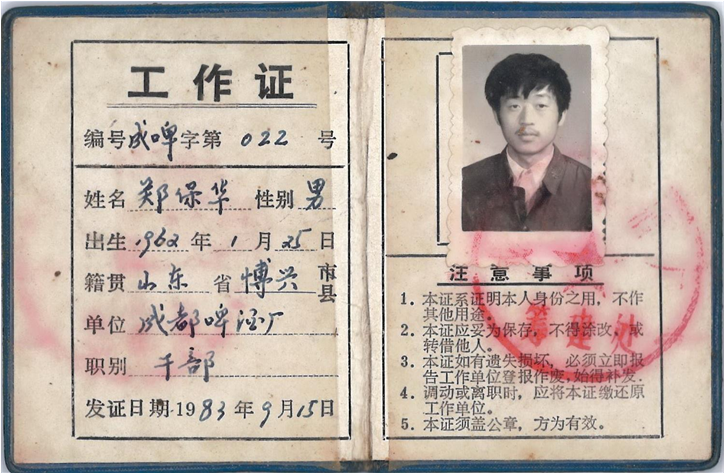 工作证
编号成啤字第 022 号
姓名 郑保华 性别 男
出生 1962 年 1 月 25 日
籍贯 山东 省 博兴 市县
单位 成都啤酒厂
职别 干部
发证日期 1983 年 9 月 15 日
注意事项
1. 本证系证明本人身份之用，不作
其他用途。
2. 本证应妥为保存，不得涂改，或
转借他人。
3. 本证如有遗失损坏，必须立即报
告工作单位登报作废，始得补发。
4. 调动或离职时，应将本证缴还原
工作单位。
5. 本证须盖公章，方为有效。
筹建处